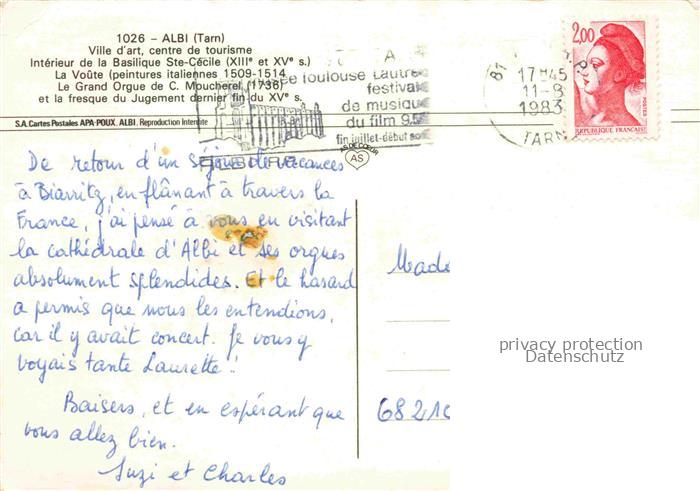 1026 - ALBI (Tarn)
Ville d'art, centre de tourisme
Intérieur de la Basilique Ste-Cécile (XIIIe et XVe s.)
La Voûte (peintures italiennes 1509-1514
Le Grand Orgue de C. Moucherel (1736)
et la fresque du Jugement dernier fin du XVe s.
S.A. Cartes Postales APA-POUX. ALBI. Reproduction Interdite
musée toulouse Lautrec
festival
de musique
du film 9,5
fin juillet-début août
ALBI
81
17H45
11-8
1983
TARN
2,00
POSTES
REPUBLIQUE FRANÇAISE
AS DE CŒUR
AS
De retour d'un séjour de vacances
à Biarritz, en flânant à travers la
France, j'ai pensé à vous en visitant
la cathédrale d'Albi et ses orgues
absolument splendides. Et le hasard
a permis que nous les entendions,
car il y avait concert. Je vous y
voyais tante Laurette !!
Baisers, et en espérant que
vous allez bien.
Suzi et Charles
Made
68210
privacy protection
Datenschutz